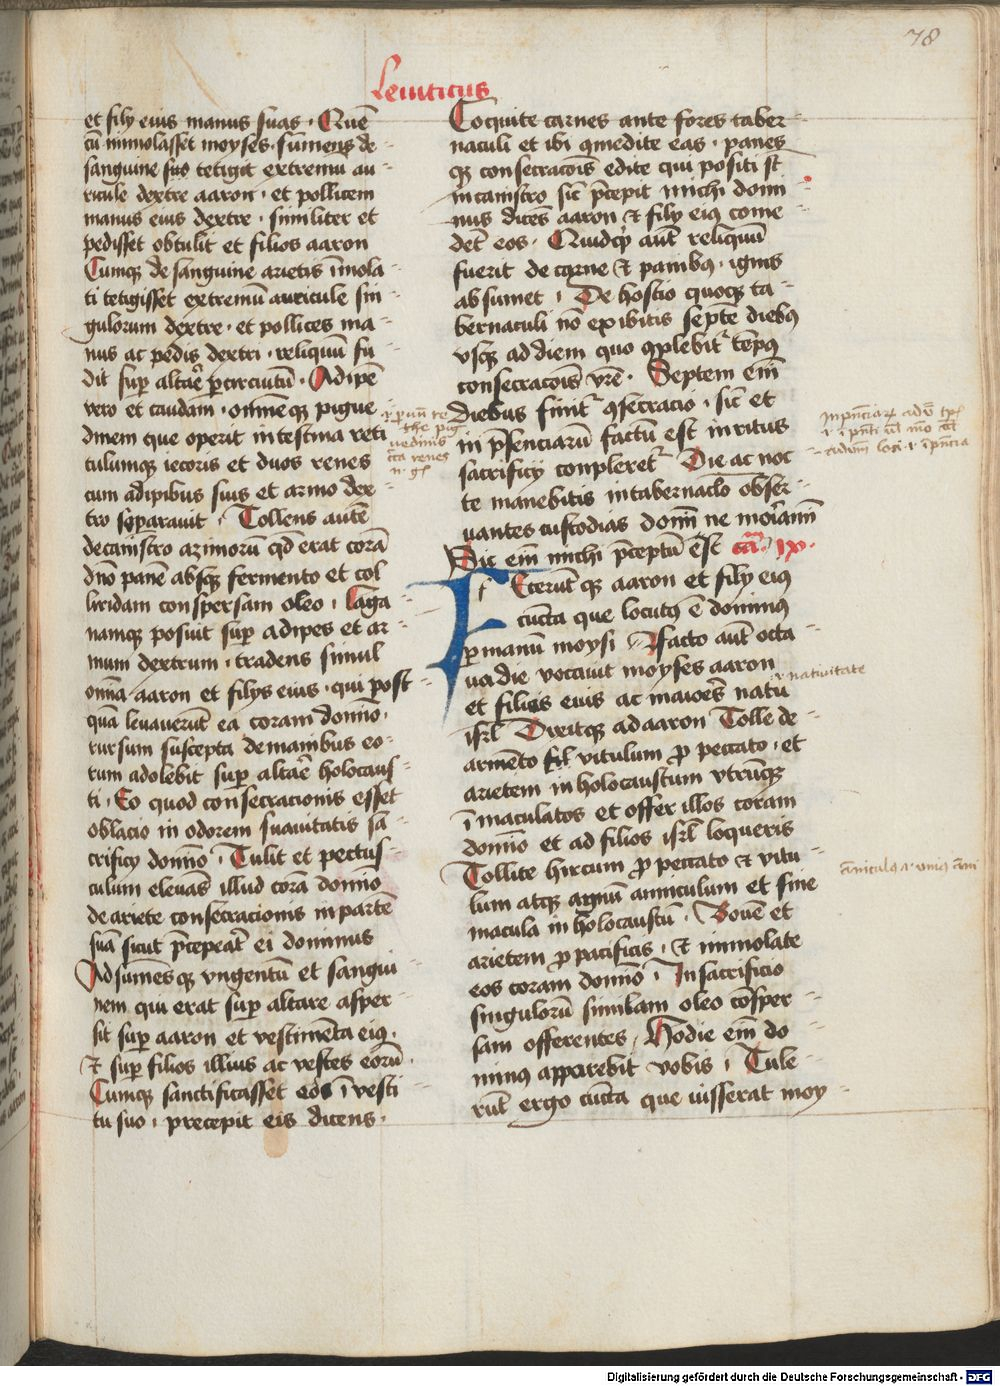 78
Leuiticus
et filij eius manus suas. Quē
cū immolasset moyses. sūmens de
sanguine suo tetigit extremū au
ricule dextre aaron. et pollicem
manus eius dextre. similiter et
pedis͛set obtulit et filios aaron
Cumq de sanguine arietis īmola
ti tetigisset extremū auricule sin
gulorum dextre. et pollices ma
nus ac pedis dextri. reliquū fu
dit sup altaē p circuitū. Adipē
vero et caudam. omneq pigue
dinem que operit intestina reti
culumq iecoris et duos renes
cum adipibus suis et armo dex
tro separauit. Tollens autē
de canistro azimorū qd erat corā
dn̄o panē absq fermento et col
liridam conspersam oleo. laga
namq posuit sup adipes et ar
mum dextrum. tradens simul
om̄a aaron et filijs eius. qui post
quā leuauerūt ea coram domīo.
rursum suscepta de manibus eo
rum adolebit sup altaē holocaus
ti. Eo quod consecracionis esset
oblacio in odorem suauitatis sā
crificij domīo. Tulit et pectus
culum eleuās illud corā domīo
de ariete consecracionis in partē
suā sicut p̄cepeat̄ ei dominus
Adsumēsq vngentū et sangui
nem qui erat sup altare asper
sit sup aaron et vestimēta eiꝰ.
et sup filios illius ac vestes eorū.
Cumq sanctificasset eos ī vesti
tu suo. precepit eis dicens.
Coquite carnes ante fores taber
naculi et ibi 9medite eas. panes
q consecracōis edite qui positi st̄
in canistro sic̄ p̄cepit michi domi
nus dicēs aaron et filij eiꝰ come
det̄ eos. Quidqͥd aut̄ reliquū
fuerit de carne et panibꝰ. ignis
absumet. De hostio quoq ta
bernaculi nō exibitis septē diebꝰ
vsq ad diem quo 9plebit͛ tēpꝰ
consecracōis vr̄e. Septem em̄
diebus finit͛ 9secracio. sic̄ et
in p̄senciarū factū est in ritus
sacrificij conpleret͛ Die ac noc
te manebitis in tabernac̄lo obser
uantes custodias domī ne moīamī
Sic em̄ michi p̄ceptū est ca͞m. ix.
Fecerūt q aaron et filij eiꝰ
cuncta que locutꝰ ē dominꝰ
p manū moysi. Facto aut̄ octa
ua die vocauit moyses aaron
et filios eius ac maioēs natu
isrl̄ Dixitq ad aaron Tolle de
armēto vitulum p peccato. et
arietem in holocaustum vtrūq
īmaculatos et offer illos coram
domīo et ad filios isrl̄ loqueris
Tollite hircum p peccato et vitu
lum atq agnū anniculum et sine
macula in holocaustū. Bouē et
arietem p pacificis. et immolate
eos coram domīo. In sacrificio
singulorū similam oleo cōsper
sam offerentes. Hodie em̄ do
minꝰ apparebit vobis. Tule
rūt ergo cūcta que iusserat moy
nativitate
āniculꝰ .i. vniꝰ āni
Digitalisierung gefördert durch die Deutsche Forschungsgemeinschaft - DFG